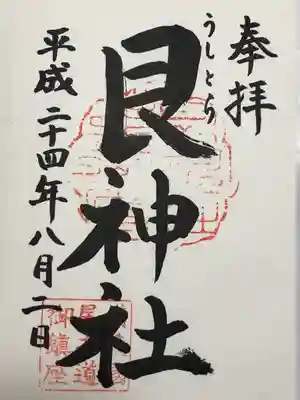 奉拝
うしとら
艮神社
平成二十四年八月二日
尾道
御鎮座